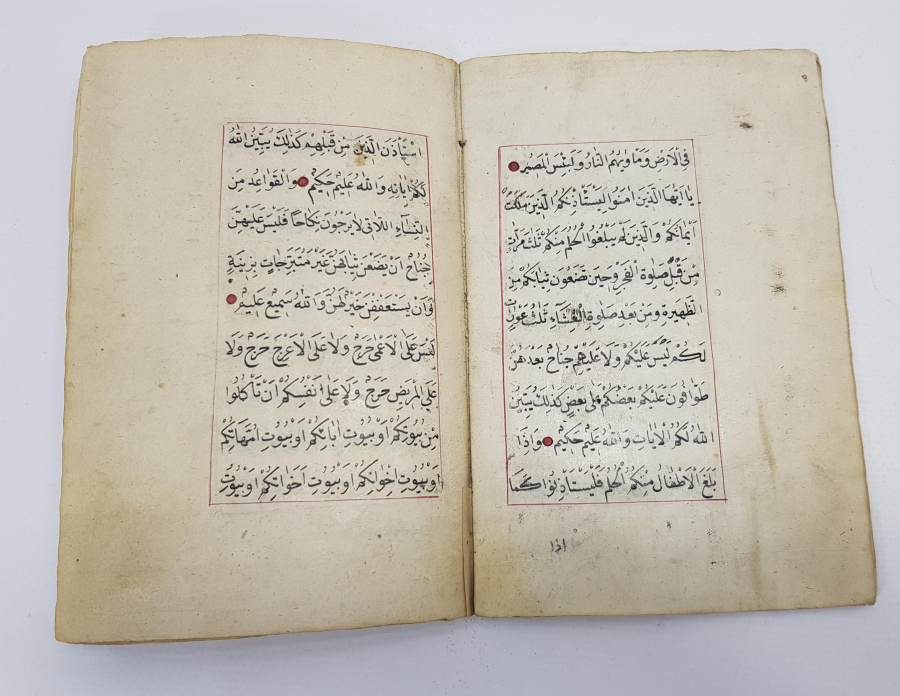 فِي الْاَرْضِ وَمَأْوٰيهُمُ النَّارُ وَلَبِئْسَ الْمَصٖيرُ
يَا اَيُّهَا الَّذٖينَ اٰمَنُوا لِيَسْتَاْذِنْكُمُ الَّذٖينَ مَلَكَتْ
اَيْمَانُكُمْ وَالَّذٖينَ لَمْ يَبْلُغُوا الْحُلُمَ مِنْكُمْ ثَلٰثَ مَرَّاتٍ
مِنْ قَبْلِ صَلٰوةِ الْفَجْرِ وَحٖينَ تَضَعُونَ ثِيَابَكُمْ مِنَ
الظَّهٖيرَةِ وَمِنْ بَعْدِ صَلٰوةِ الْعِشَاءِ ثَلٰثُ عَوْرَاتٍ
لَكُمْ لَيْسَ عَلَيْكُمْ وَلَا عَلَيْهِمْ جُنَاحٌ بَعْدَهُنَّ
طَوَّافُونَ عَلَيْكُمْ بَعْضُكُمْ عَلٰى بَعْضٍ كَذٰلِكَ يُبَيِّنُ
اللّٰهُ لَكُمُ الْاٰيَاتِ وَاللّٰهُ عَلٖيمٌ حَكٖيمٌ وَاِذَا
بَلَغَ الْاَطْفَالُ مِنْكُمُ الْحُلُمَ فَلْيَسْتَاْذِنُوا كَمَا
اسْتَاْذَنَ الَّذٖينَ مِنْ قَبْلِهِمْ كَذٰلِكَ يُبَيِّنُ اللّٰهُ
لَكُمْ اٰيَاتِهٖ وَاللّٰهُ عَلٖيمٌ حَكٖيمٌ وَالْقَوَاعِدُ مِنَ
النِّسَاءِ اللَّاتٖي لَا يَرْجُونَ نِكَاحًا فَلَيْسَ عَلَيْهِنَّ
جُنَاحٌ اَنْ يَضَعْنَ ثِيَابَهُنَّ غَيْرَ مُتَبَرِّجَاتٍ بِزٖينَةٍ
وَاَنْ يَسْتَعْفِفْنَ خَيْرٌ لَهُنَّ وَاللّٰهُ سَمٖيعٌ عَلٖيمٌ
لَيْسَ عَلَى الْاَعْمٰى حَرَجٌ وَلَا عَلَى الْاَعْرَجِ حَرَجٌ وَلَا
عَلَى الْمَرٖيضِ حَرَجٌ وَلَا عَلٰى اَنْفُسِكُمْ اَنْ تَاْكُلُوا
مِنْ بُيُوتِكُمْ اَوْ بُيُوتِ اٰبَائِكُمْ اَوْ بُيُوتِ اُمَّهَاتِكُمْ
اَوْ بُيُوتِ اِخْوَانِكُمْ اَوْ بُيُوتِ اَخَوَاتِكُمْ اَوْ بُيُوتِ